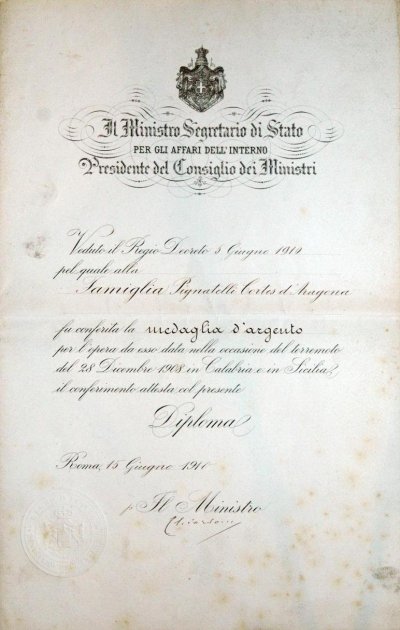 Il Ministro Segretario di Stato
PER GLI AFFARI DELL'INTERNO
Presidente del Consiglio dei Ministri
Veduto il Regio Decreto 5 Giugno 1910
pel quale alla
Famiglia Pignatelli Cortes d'Aragona
fu conferita la medaglia d'argento
per l'opera da esso data nella occasione del terremoto
del 28 Dicembre 1908 in Calabria e in Sicilia,
il conferimento attesta col presente
Diploma
Roma, 15 Giugno 1910
p Il Ministro